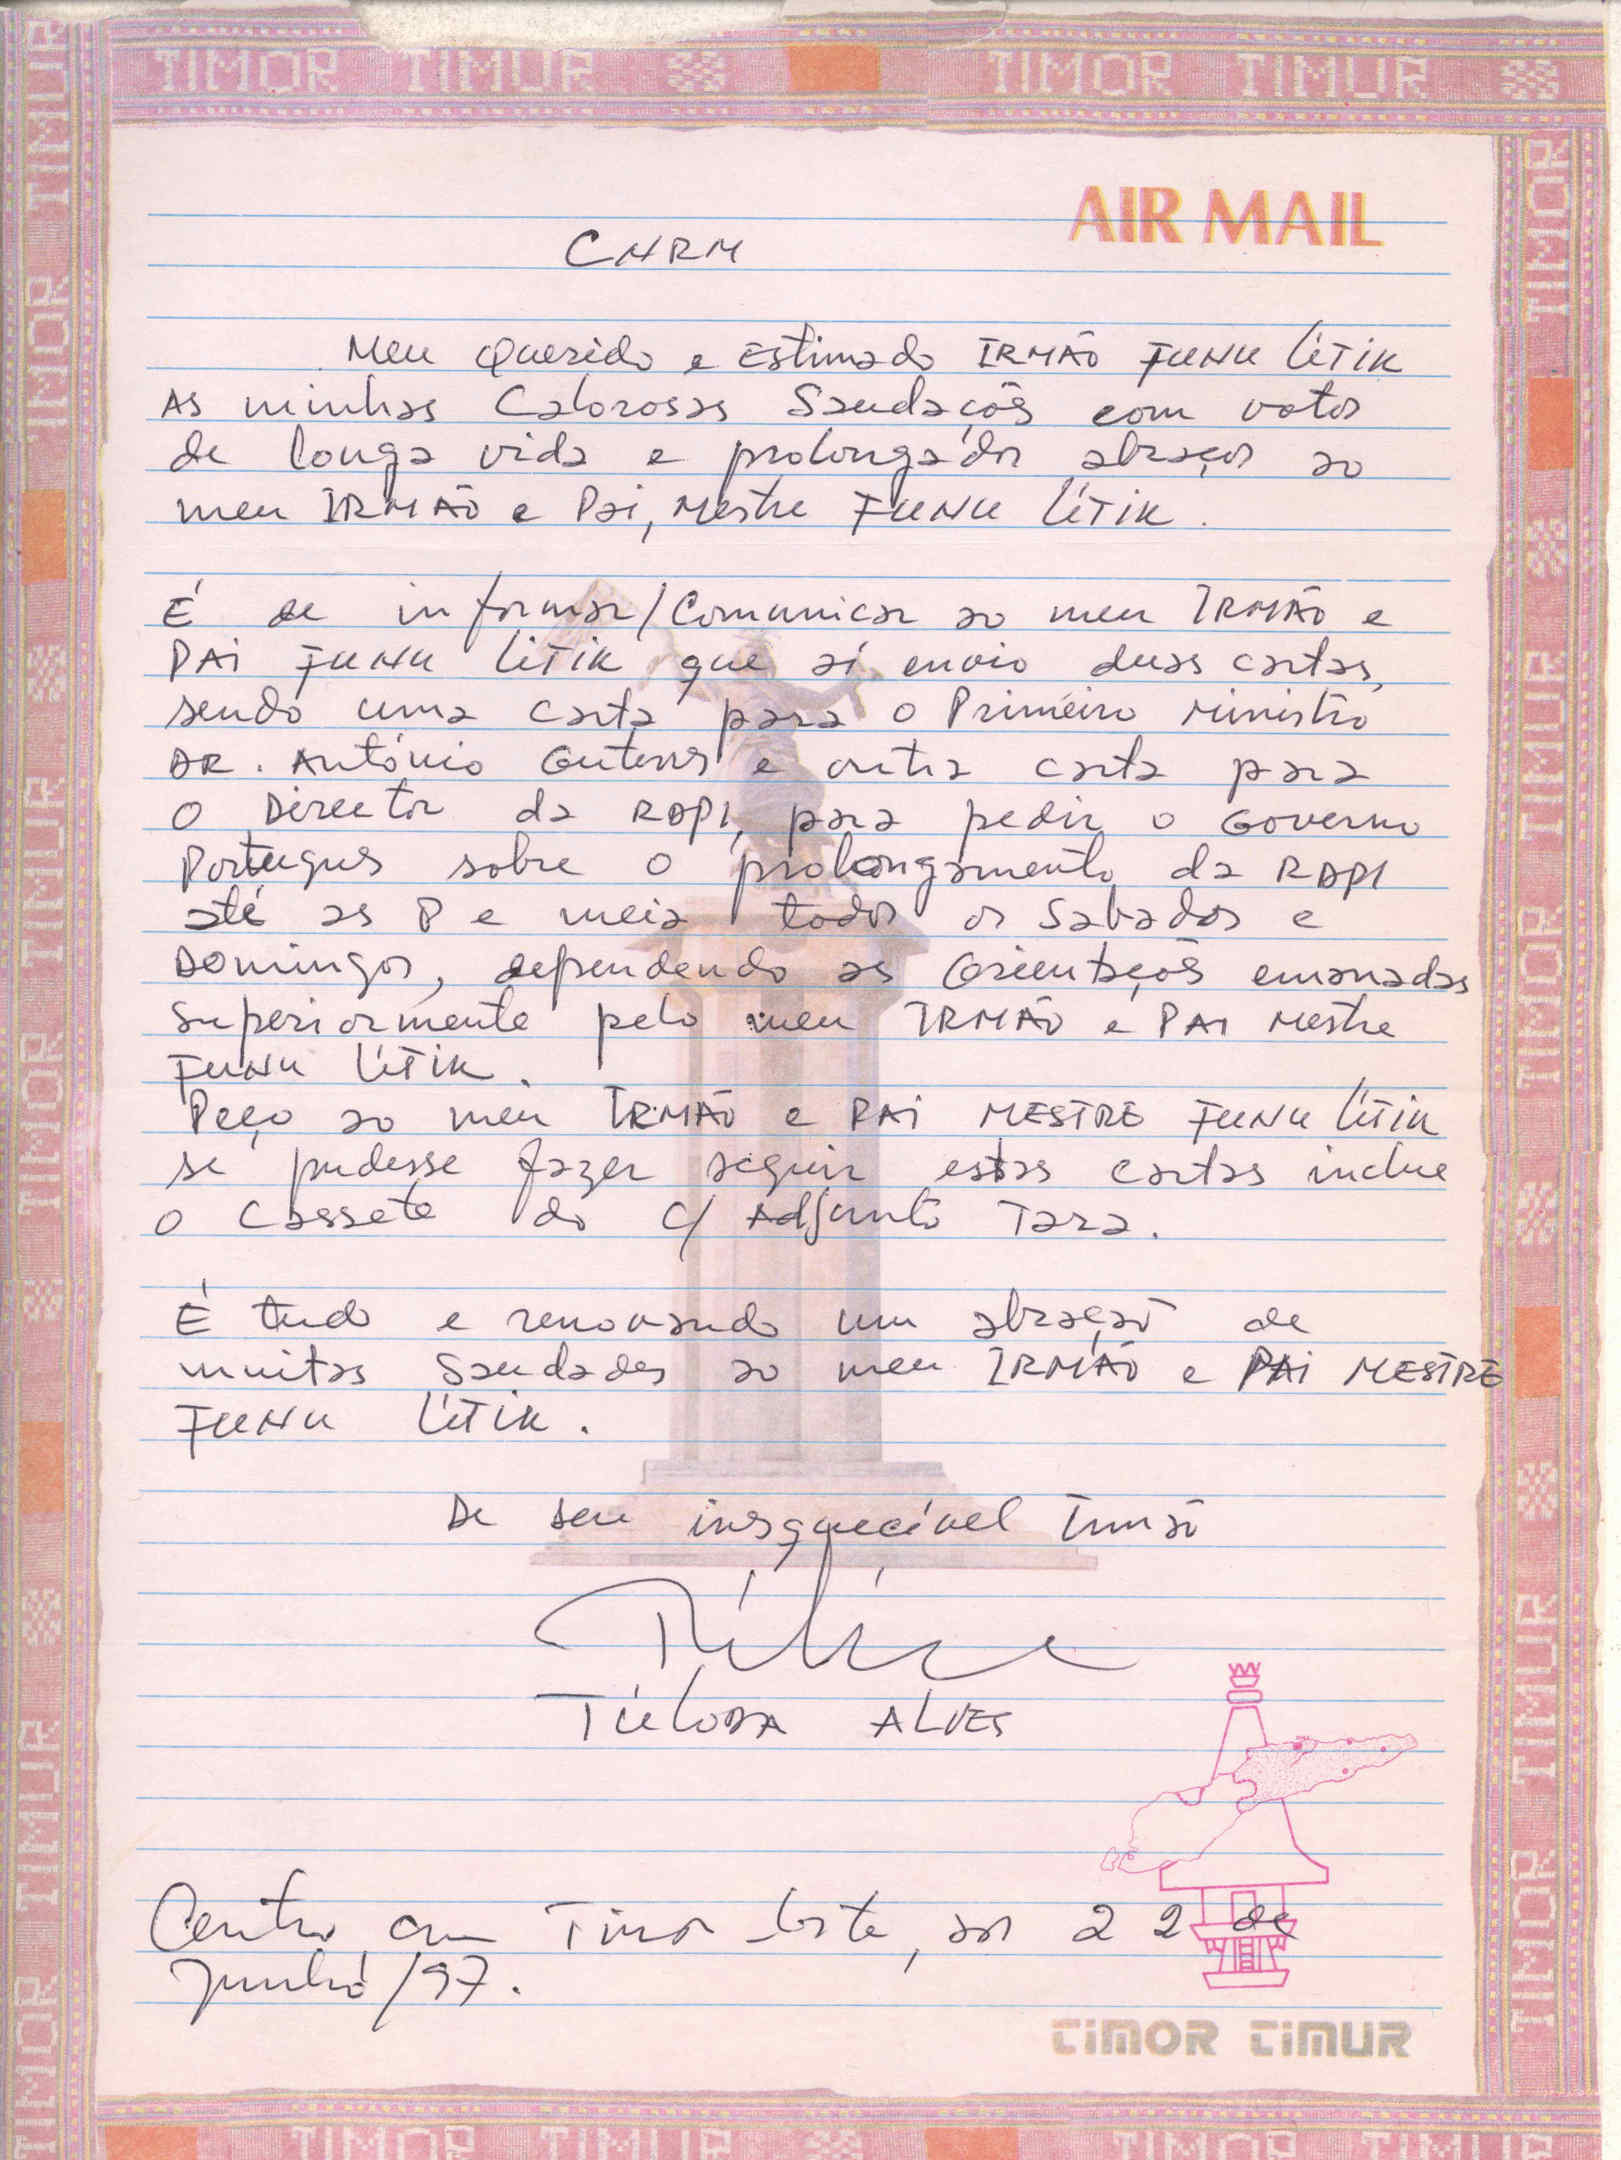 TIMOR TIMUR TIMOR TIMUR
AIR MAIL
CNRM
Meu Querido e Estimado IRMÃO FUNU LITIK
As minhas Calorosas Saudaçõs com votos
de longa vida e prolongádos abraços ao
meu IRMÃO e Pai, Mestre FUNU LITIK.
É de informar/Comunicar ao meu IRMÃO e
PAI FUNU LITIK que aí envio duas cartas,
sendo uma carta para o Primeiro Ministro
DR. António Guterres e outra carta para
o Director da RDPI, para pedir o Governo
Portugues sobre o prolongamento da RDPI
até as P e meia todos os Sabados e
Domingos, dependendo as Orientaçõs emanadas
superiormente pelo meu IRMÃO e PAI Mestre
FUNU LITIK.
Peço ao meu IRMÃO e PAI MESTRE FUNU LITIK
se pudesse fazer seguir estas cartas inclue
o Cassete do C/ Adjunto Tara.
É tudo e renovando um abraçaõ de
muitas Saudades ao meu IRMÃO e PAI MESTRE
FUNU LITIK.
De seu inesquecível Irmaõ
TÚLODA ALVES
Centro em Timor Leste, aos 22 de
Junho/97.
TIMOR TIMUR
TIMOR TIMUR TIMOR TIMUR